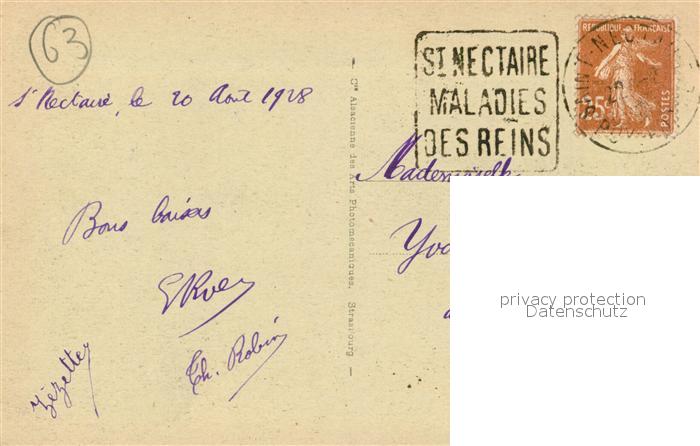 63
St Nectaire, le 20 Août 1928
Bons baisers
Th. Robin
Zézette
— Cie Alsacienne des Arts Photomécaniques, Strasbourg —
ST NECTAIRE
MALADIES
DES REINS
REPUBLIQUE FRANÇAISE
POSTES
Mademoiselle
privacy protection
Datenschutz